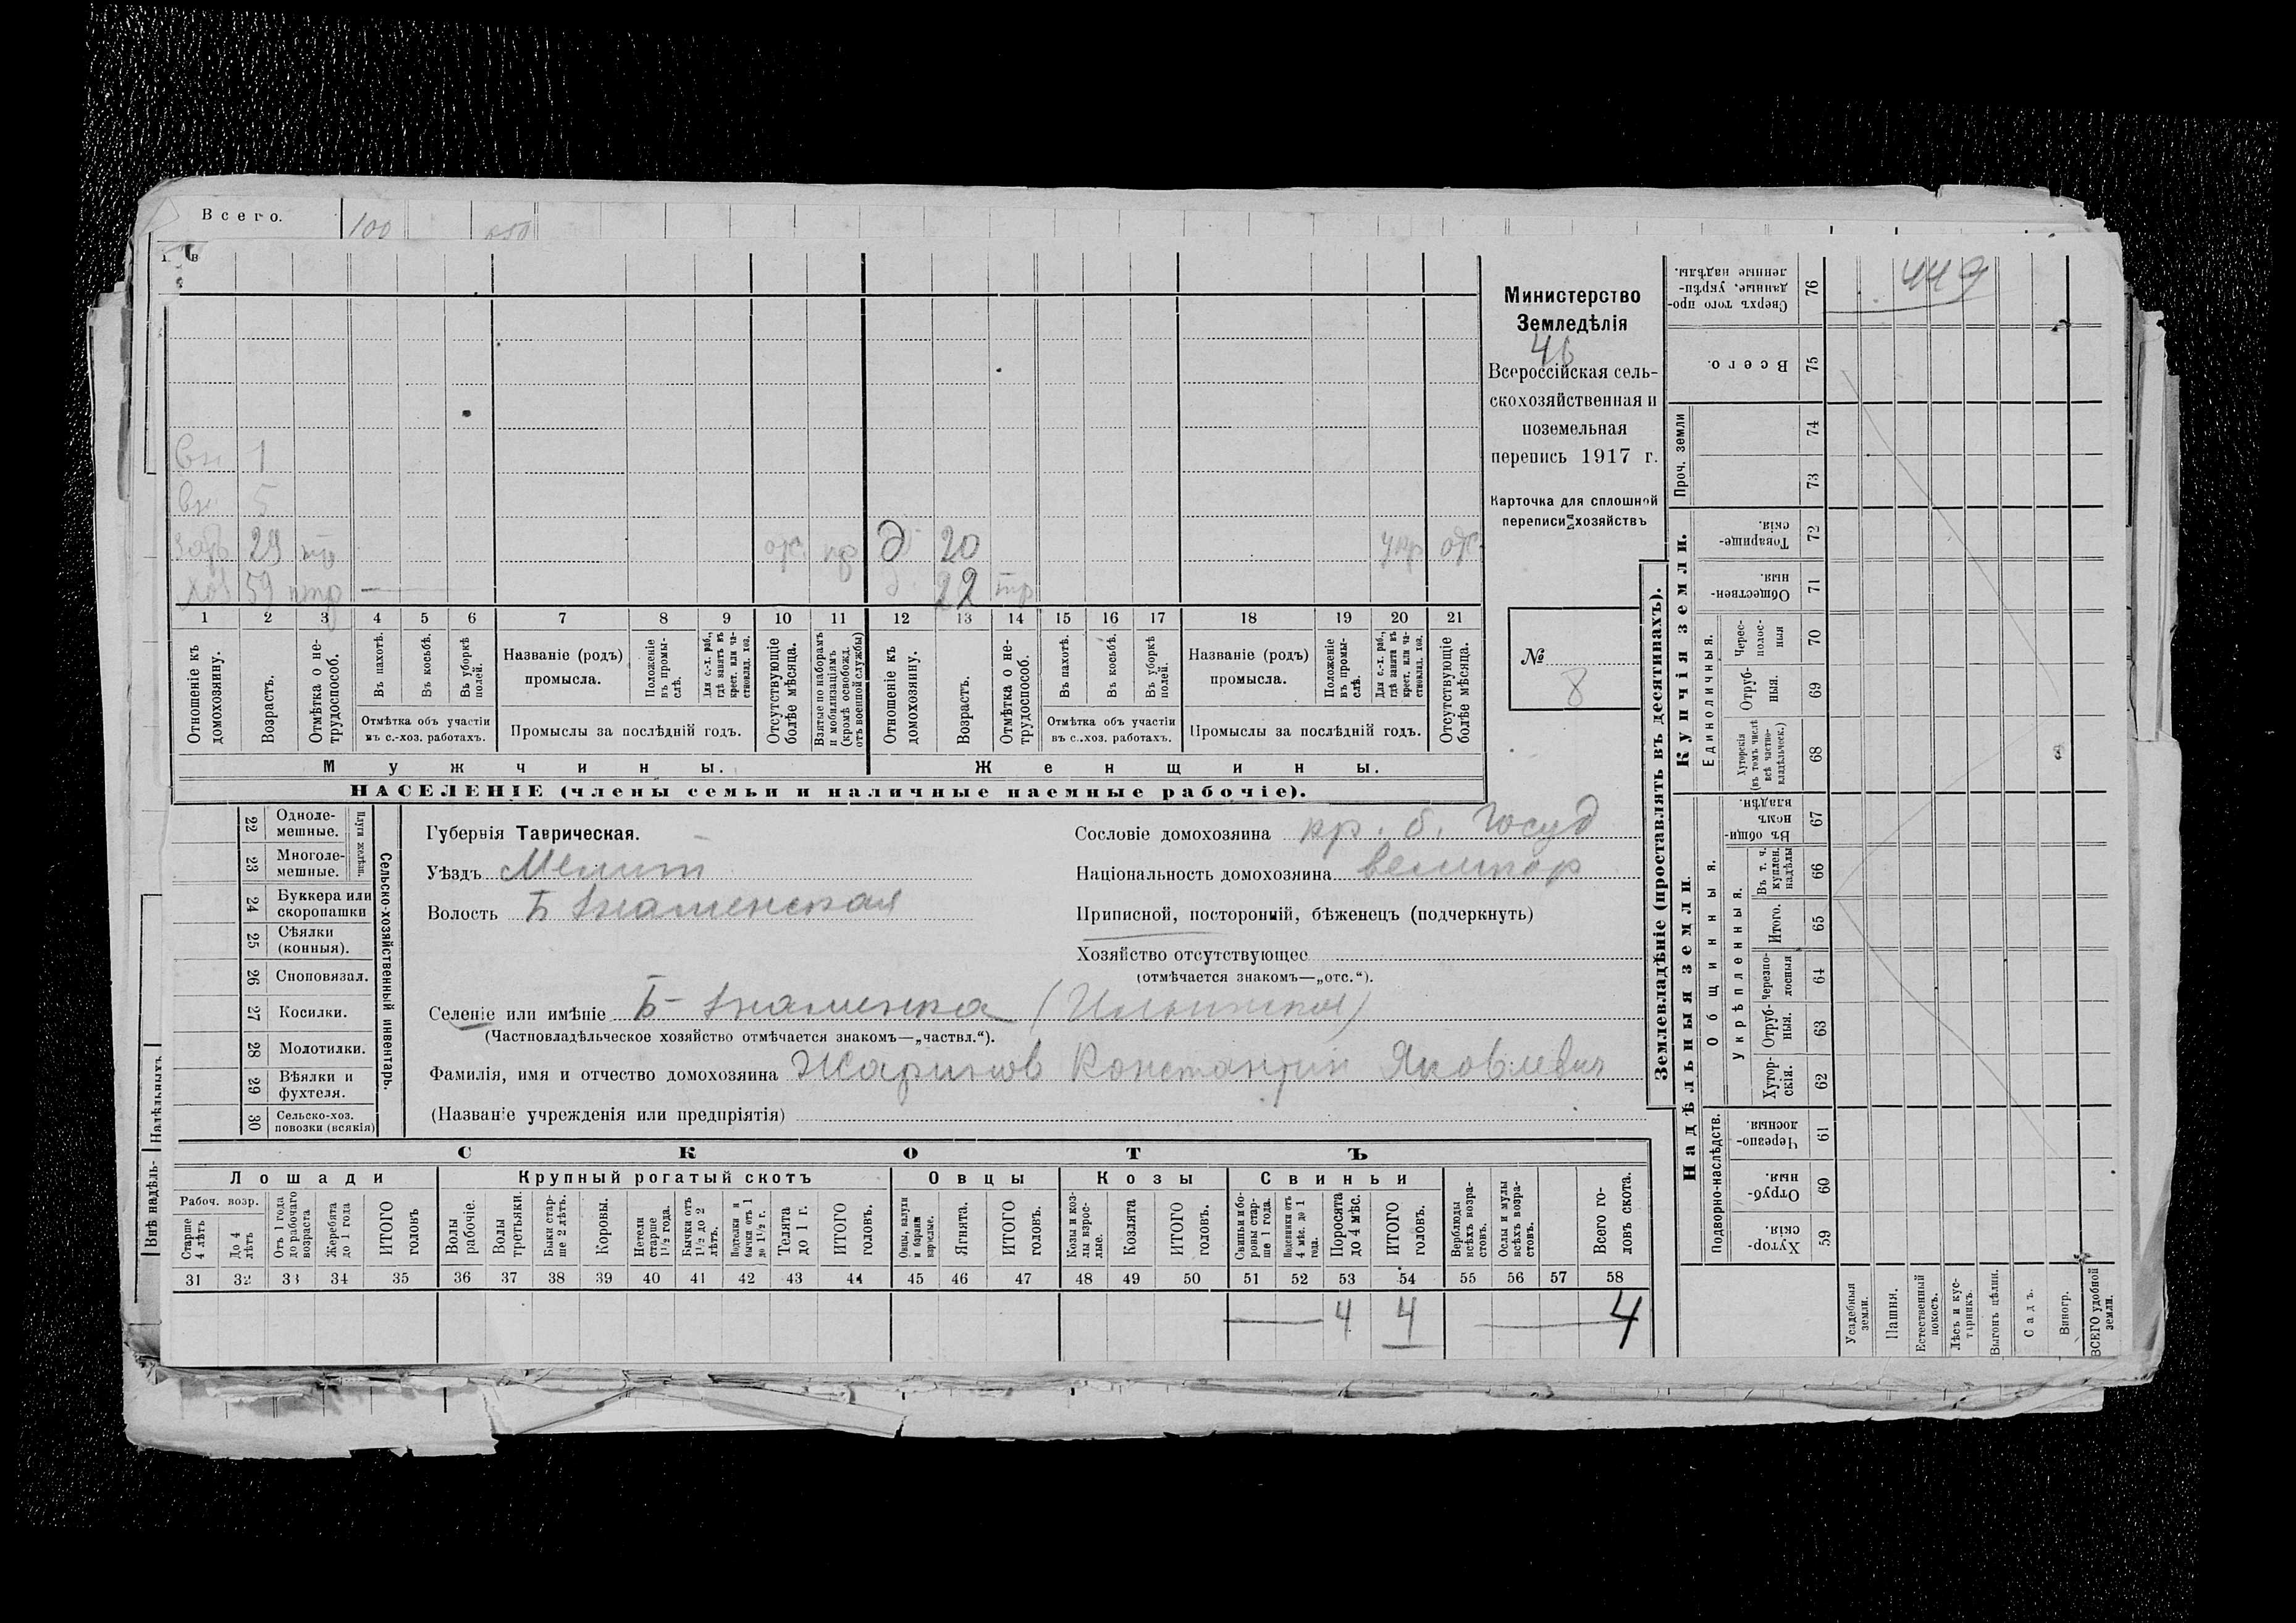 Всего. 100 650
вн 1
вн 5
29 отс. пр д 20 отс.
хоз 59 нтр 22 нтр
1 2 3 4 5 6 7 8 9 10 11 12 13 14 15 16 17 18 19 20 21
Отношеніе къ домохозяину.
Возрастъ.
Отмѣтка о нетрудоспособ.
Въ пахотѣ.
Въ косьбѣ.
Въ уборкѣ полей.
Отмѣтка объ участіи въ с.-хоз. работахъ.
Названіе (родъ) промысла.
Положеніе въ промыслѣ.
Для с.-х. раб., гдѣ занятъ въ крест. или частновлад. хоз.
Промыслы за послѣдній годъ.
Отсутствующіе болѣе мѣсяца.
Взятые по наборамъ и мобилизаціямъ (кромѣ освобожд. отъ военной службы)
Отношеніе къ домохозяину.
Возрастъ.
Отмѣтка о нетрудоспособ.
Въ пахотѣ.
Въ косьбѣ.
Въ уборкѣ полей.
Отмѣтка объ участіи въ с.-хоз. работахъ.
Названіе (родъ) промысла.
Положеніе въ промыслѣ.
Для с.-х. раб., гдѣ занята въ крест. или частновлад. хоз.
Промыслы за послѣдній годъ.
Отсутствующіе болѣе мѣсяца.
Мужчины.
Женщины.
НАСЕЛЕНІЕ (члены семьи и наличные наемные рабочіе).
Министерство
Земледѣлія
46
Всероссійская сель-
скохозяйственная и
поземельная
перепись 1917 г.
Карточка для сплошной
переписи хозяйствъ
№
8
22 Одноле-мешные.
23 Многоле-мешные.
Плуги желѣзн.
24 Буккера или скоропашки
25 Сѣялки (конныя).
26 Сноповязал.
27 Косилки.
28 Молотилки.
29 Вѣялки и фухтеля.
30 Сельско-хоз. повозки (всякія)
Сельско-хозяйственный инвентарь.
Губернія Таврическая.
Уѣздъ Мелит
Волость Б Знаменская
Сословіе домохозяина кр. б. Госуд
Національность домохозяина великор
Приписной, посторонній, бѣженецъ (подчеркнуть)
Хозяйство отсутствующее
(отмѣчается знакомъ—„отс.“).
Селеніе или имѣніе Б-Знаменка (Ильинка)
(Частновладѣльческое хозяйство отмѣчается знакомъ—„частвл.“).
Фамилія, имя и отчество домохозяина Жариков Константин Яковлевич
(Названіе учрежденія или предпріятія)
СКОТЪ
Лошади
Крупный рогатый скотъ
Овцы
Козы
Свиньи
Рабоч. возр.
Старше 4 лѣтъ
До 4 лѣтъ
Отъ 1 года до рабочаго возраста
Жеребята до 1 года
ИТОГО головъ
Волы рабочіе.
Волы третьяки.
Быки старше 2 лѣтъ.
Коровы.
Нетели старше 1½ года.
Бычки отъ 1½ до 2 лѣтъ.
Подтелки и бычки отъ 1 до 1½ г.
Телята до 1 г.
ИТОГО головъ.
Овцы, валухи и бараны взрослые.
Ягнята.
ИТОГО головъ.
Козы и козлы взрослые.
Козлята
ИТОГО головъ.
Свиньи и боровы старше 1 года.
Подсвинки отъ 4 мѣс. до 1 года.
Поросята до 4 мѣс.
ИТОГО головъ.
Верблюды всѣхъ возрастовъ.
Ослы и мулы всѣхъ возрастовъ.
Всего головъ скота.
31 32 33 34 35 36 37 38 39 40 41 42 43 44 45 46 47 48 49 50 51 52 53 54 55 56 57 58
4 4 4
Землевладѣніе (проставлять въ десятинахъ).
449
Сверхъ того проданные, укрѣпленные надѣлы. 76
Всего. 75
Проч. земли 74 73
Купчія земли.
Товарищескія. 72
Общественныя. 71
Единоличныя.
Черезполосныя 70
Отрубныя. 69
Хуторскія (въ томъ числѣ всѣ частновладѣльческ.) 68
Надѣльныя земли.
Общинныя.
Въ общинномъ владѣн. 67
Укрѣпленныя.
Въ т. ч. куплен. надѣлы 66
Итого. 65
Черезполосныя 64
Отрубныя. 63
Хуторскія. 62
Подворно-наслѣдств.
Черезполосныя. 61
Отрубныя. 60
Хуторскія. 59
Усадебныя земли.
Пашня.
Естественный покосъ.
Лѣсъ и кустарникъ.
Выгонъ цѣлин.
Садъ.
Виногр.
ВСЕГО удобной земли.
Надѣльныхъ
Внѣ надѣль-